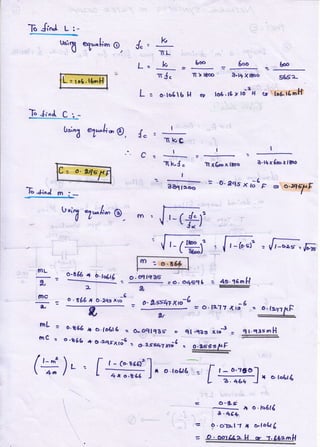 To find L :-
Using equation ①, fc = k / πL
L = k / πfc = 600 / π×1800 = 600 / 3.14×1800 = 600 / 5652
L = 106.16mH
L = 0.10616 H or 106.16×10⁻³ H or 106.16mH
To find C :-
Using equation ②, fc = 1 / πkC
∴ C = 1 / πkfc = 1 / π×600×1800 = 1 / 3.14×600×1800
C = 0.295μF
= 1 / 3391200 = 0.295×10⁻⁶ F or 0.295μF
To find m :-
Using equation m = √1-(fc/f∞)²
= √1-(1800/3600)² = √1-(0.5)² = √1-0.25 = √0.75
m = 0.866
mL/2 = 0.866 × 0.10616 / 2 = 0.091935 / 2 = 0.04596 = 45.96mH
mC/2 = 0.866 × 0.295×10⁻⁶ / 2 = 0.25547×10⁻⁶ / 2 = 0.1277×10⁻⁶ = 0.1277μF
mL = 0.866 × 0.10616 = 0.091935 = 91.935×10⁻³ = 91.935mH
mC = 0.866 × 0.295×10⁻⁶ = 0.25547×10⁻⁶ = 0.2555μF
(1-m² / 4m) L = [1-(0.866)² / 4×0.866] × 0.10616 = [1-0.750 / 3.464] × 0.10616
= 0.25 / 3.464 × 0.10616
= 0.07217 × 0.10616
= 0.007662 H or 7.662mH